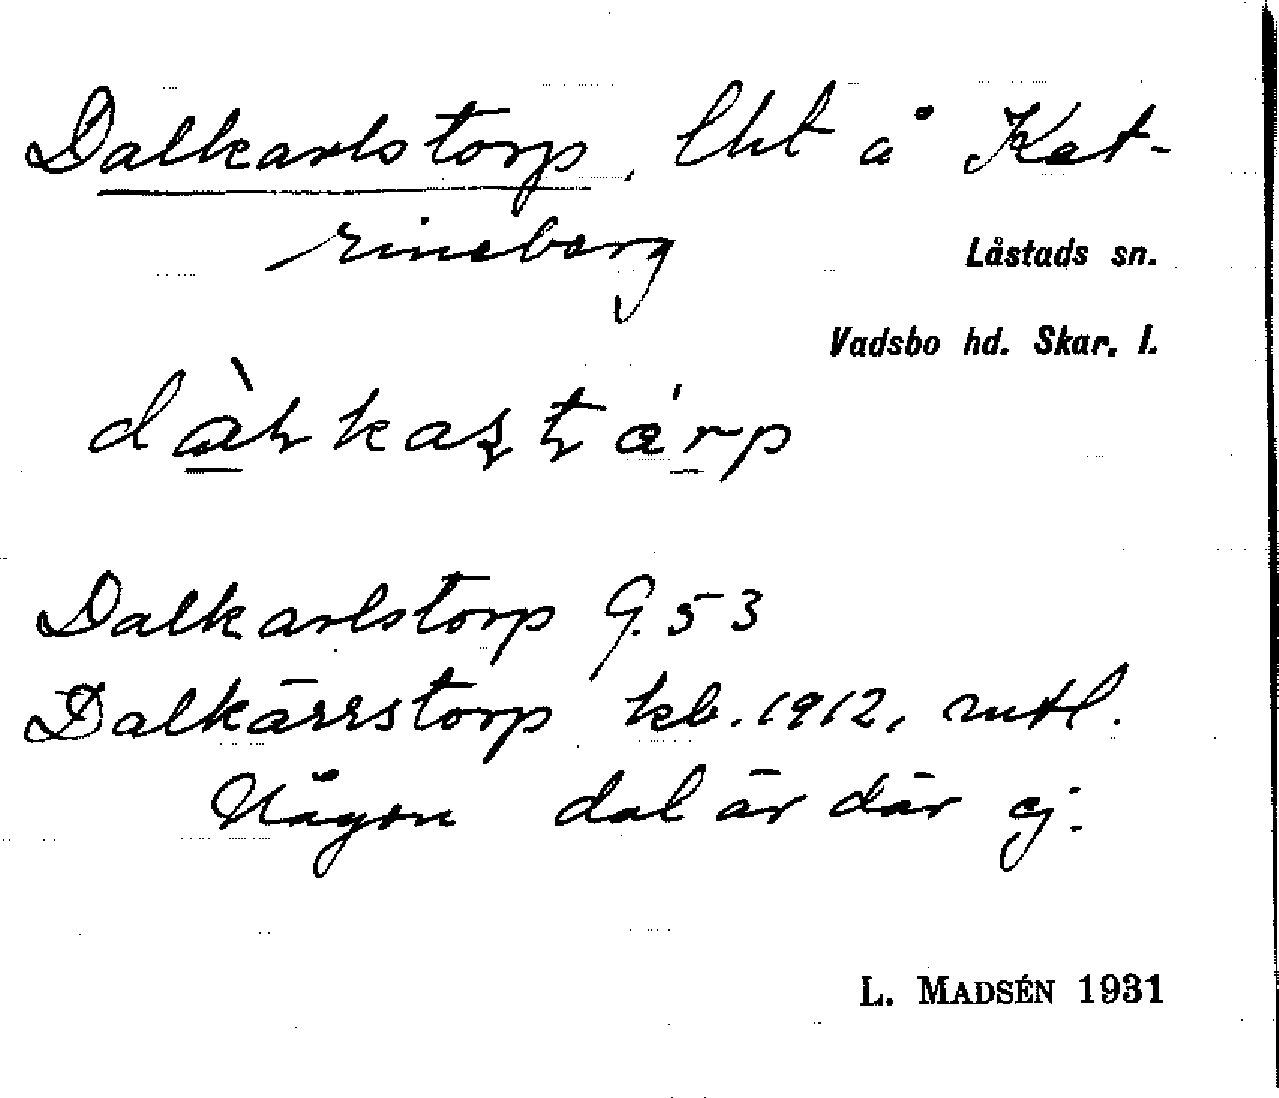 Dalkarlstorp, lht å Kat-
rineberg
Låstads sn.
Vadsbo hd. Skar. l.
Dalkarlstorp G. 53
Dalkärrstorp kb. 1912, mtl.
Någon dal är där ej.
L. MADSÉN 1931